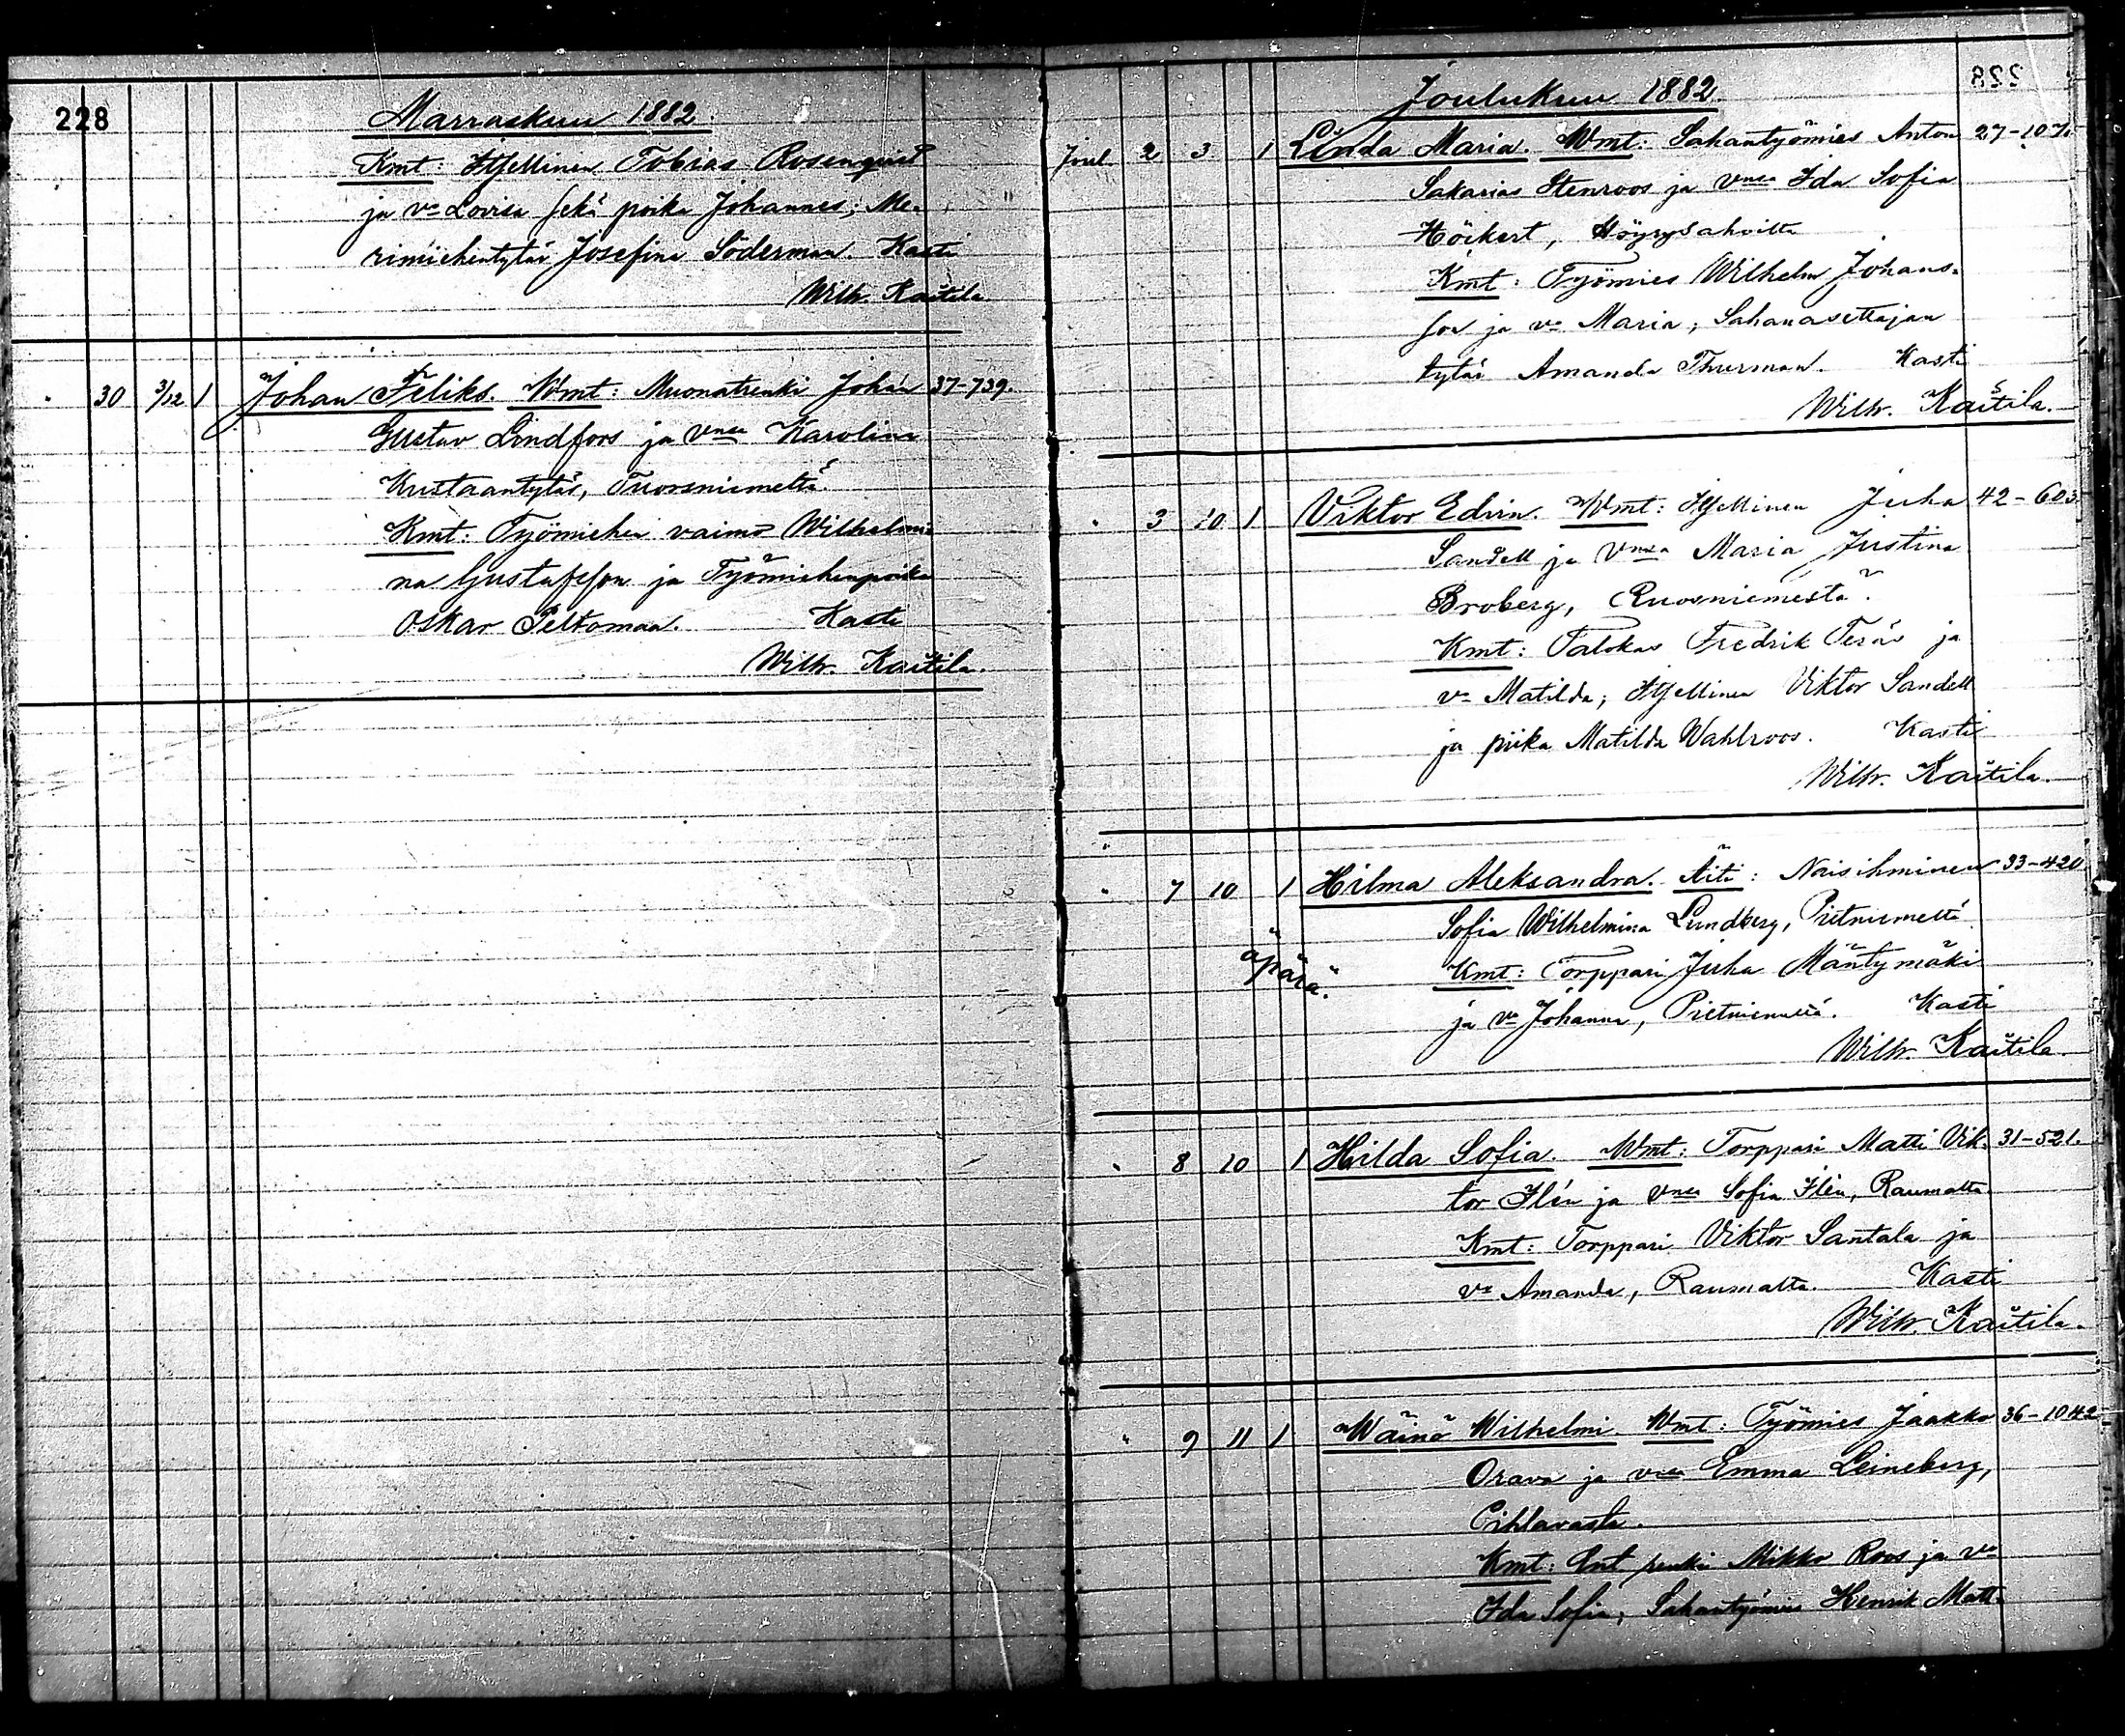 228
Marraskuu 1882.
Kmt: Itsellinen Tobias Rosenqvist
ja vo Lovisa sekä poika Johannes; Me-
rimiehentytär Josefina Söderman. Kasti
Wilh. Kaitila
" 30 3/12 1 Johan Feliks. Wmt: Muonatrenki Johan 37-739.
Gustav Lindfors ja vnsa Karolina
Kustaantytär, Tuorsniemeltä.
Kmt: Työmiehen vaimo Wilhelmi-
na Gustafsson ja Työmiehenpoika
Oskar Peltomaa. Kasti
Wilh. Kaitila.
Joulukuu 1882.
228
Joul. 2 3 1 Linda Maria. Wmt: Sahantyömies Anton 27-107.
Sakarias Stenroos ja vnsa Ida Sofia
Höckert, Höyrysahoilta
Kmt: Työmies Wilhelm Johans-
son ja vo Maria; Sahanasettajan
tytär Amanda Thurman. Kasti
Wilh. Kaitila.
" 3 10 1 Viktor Edvin. Wmt: Itsellinen Juha 42-603.
Sandell ja Vnsa Maria Justina
Broberg, Ruosniemestä.
Kmt: Talokas Fredrik Teräs ja
vo Matilda; Itsellinen Viktor Sandell
ja piika Matilda Wahlroos. Kasti
Wilh. Kaitila.
" 7 10 1 Hilma Aleksandra. Äiti: Naisihminen 33-420.
Sofia Wilhelmina Lundberg, Pietniemeltä.
äpärä.
Kmt: Torppari Juha Mäntymäki
ja vo Johanna, Pietniemeltä. Kasti
Wilh. Kaitila.
" 8 10 1 Hilda Sofia. Wmt: Torppari Matti Vik- 31-521.
tor Ilén ja vnsa Sofia Ilén, Raumalta.
Kmt: Torppari Viktor Santala ja
vo Amanda, Raumalta. Kasti
Wilh. Kaitila.
" 9 11 1 Wäinö Wilhelmi. Wmt: Työmies Jaakko 36-1042
Orava ja vnsa Emma Leineberg,
Pihlavasta.
Kmt: Mikko Roos ja vo
Ida Sofia; Sahantyömies Henrik Matt-